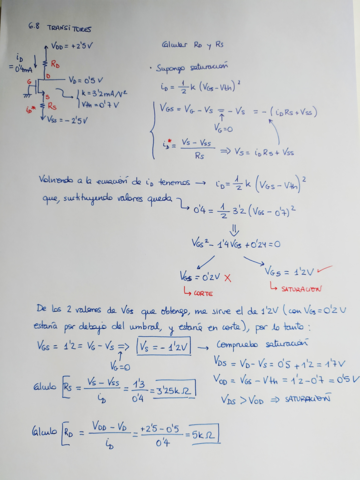 6.8 TRANSISTORES
VDD = +2'5V
Calcular RD y RS
iD = 0'4mA
RD
D
VD = 0'5V
G
k = 3'2 mA/V²
Vth = 0'7V
S
iD*
RS
VSS = -2'5V
· Supongo saturación
iD = 1/2 k (VGS - Vth)²
VGS = VG - VS = -VS = -(iD RS + VSS)
VG=0
iD* = (VS - VSS)/RS ⇒ VS = iD RS + VSS
Volviendo a la ecuación de iD tenemos → iD = 1/2 k (VGS - Vth)²
que, sustituyendo valores queda → 0'4 = 1/2 3'2 (VGS - 0'7)²
⇓
VGS² - 1'4VGS + 0'24 = 0
VGS = 0'2V ✗
↳ CORTE
VGS = 1'2V ✓
↳ SATURACION
De los 2 valores de VGS que obtengo, me sirve el de 1'2V (con VGS = 0'2V
estaría por debajo del umbral, y estaría en corte), por lo tanto:
VGS = 1'2 = VG - VS ⇒ VS = -1'2V → Compruebo saturación
VG=0
VDS = VD - VS = 0'5 + 1'2 = 1'7V
VOD = VGS - Vth = 1'2 - 0'7 = 0'5V
VDS > VOD ⇒ SATURACIÓN
Cálculo RS = (VS - VSS)/iD = 1'3/0'4 = 3'25kΩ
Cálculo RD = (VDD - VD)/iD = (+2'5 - 0'5)/0'4 = 5kΩ